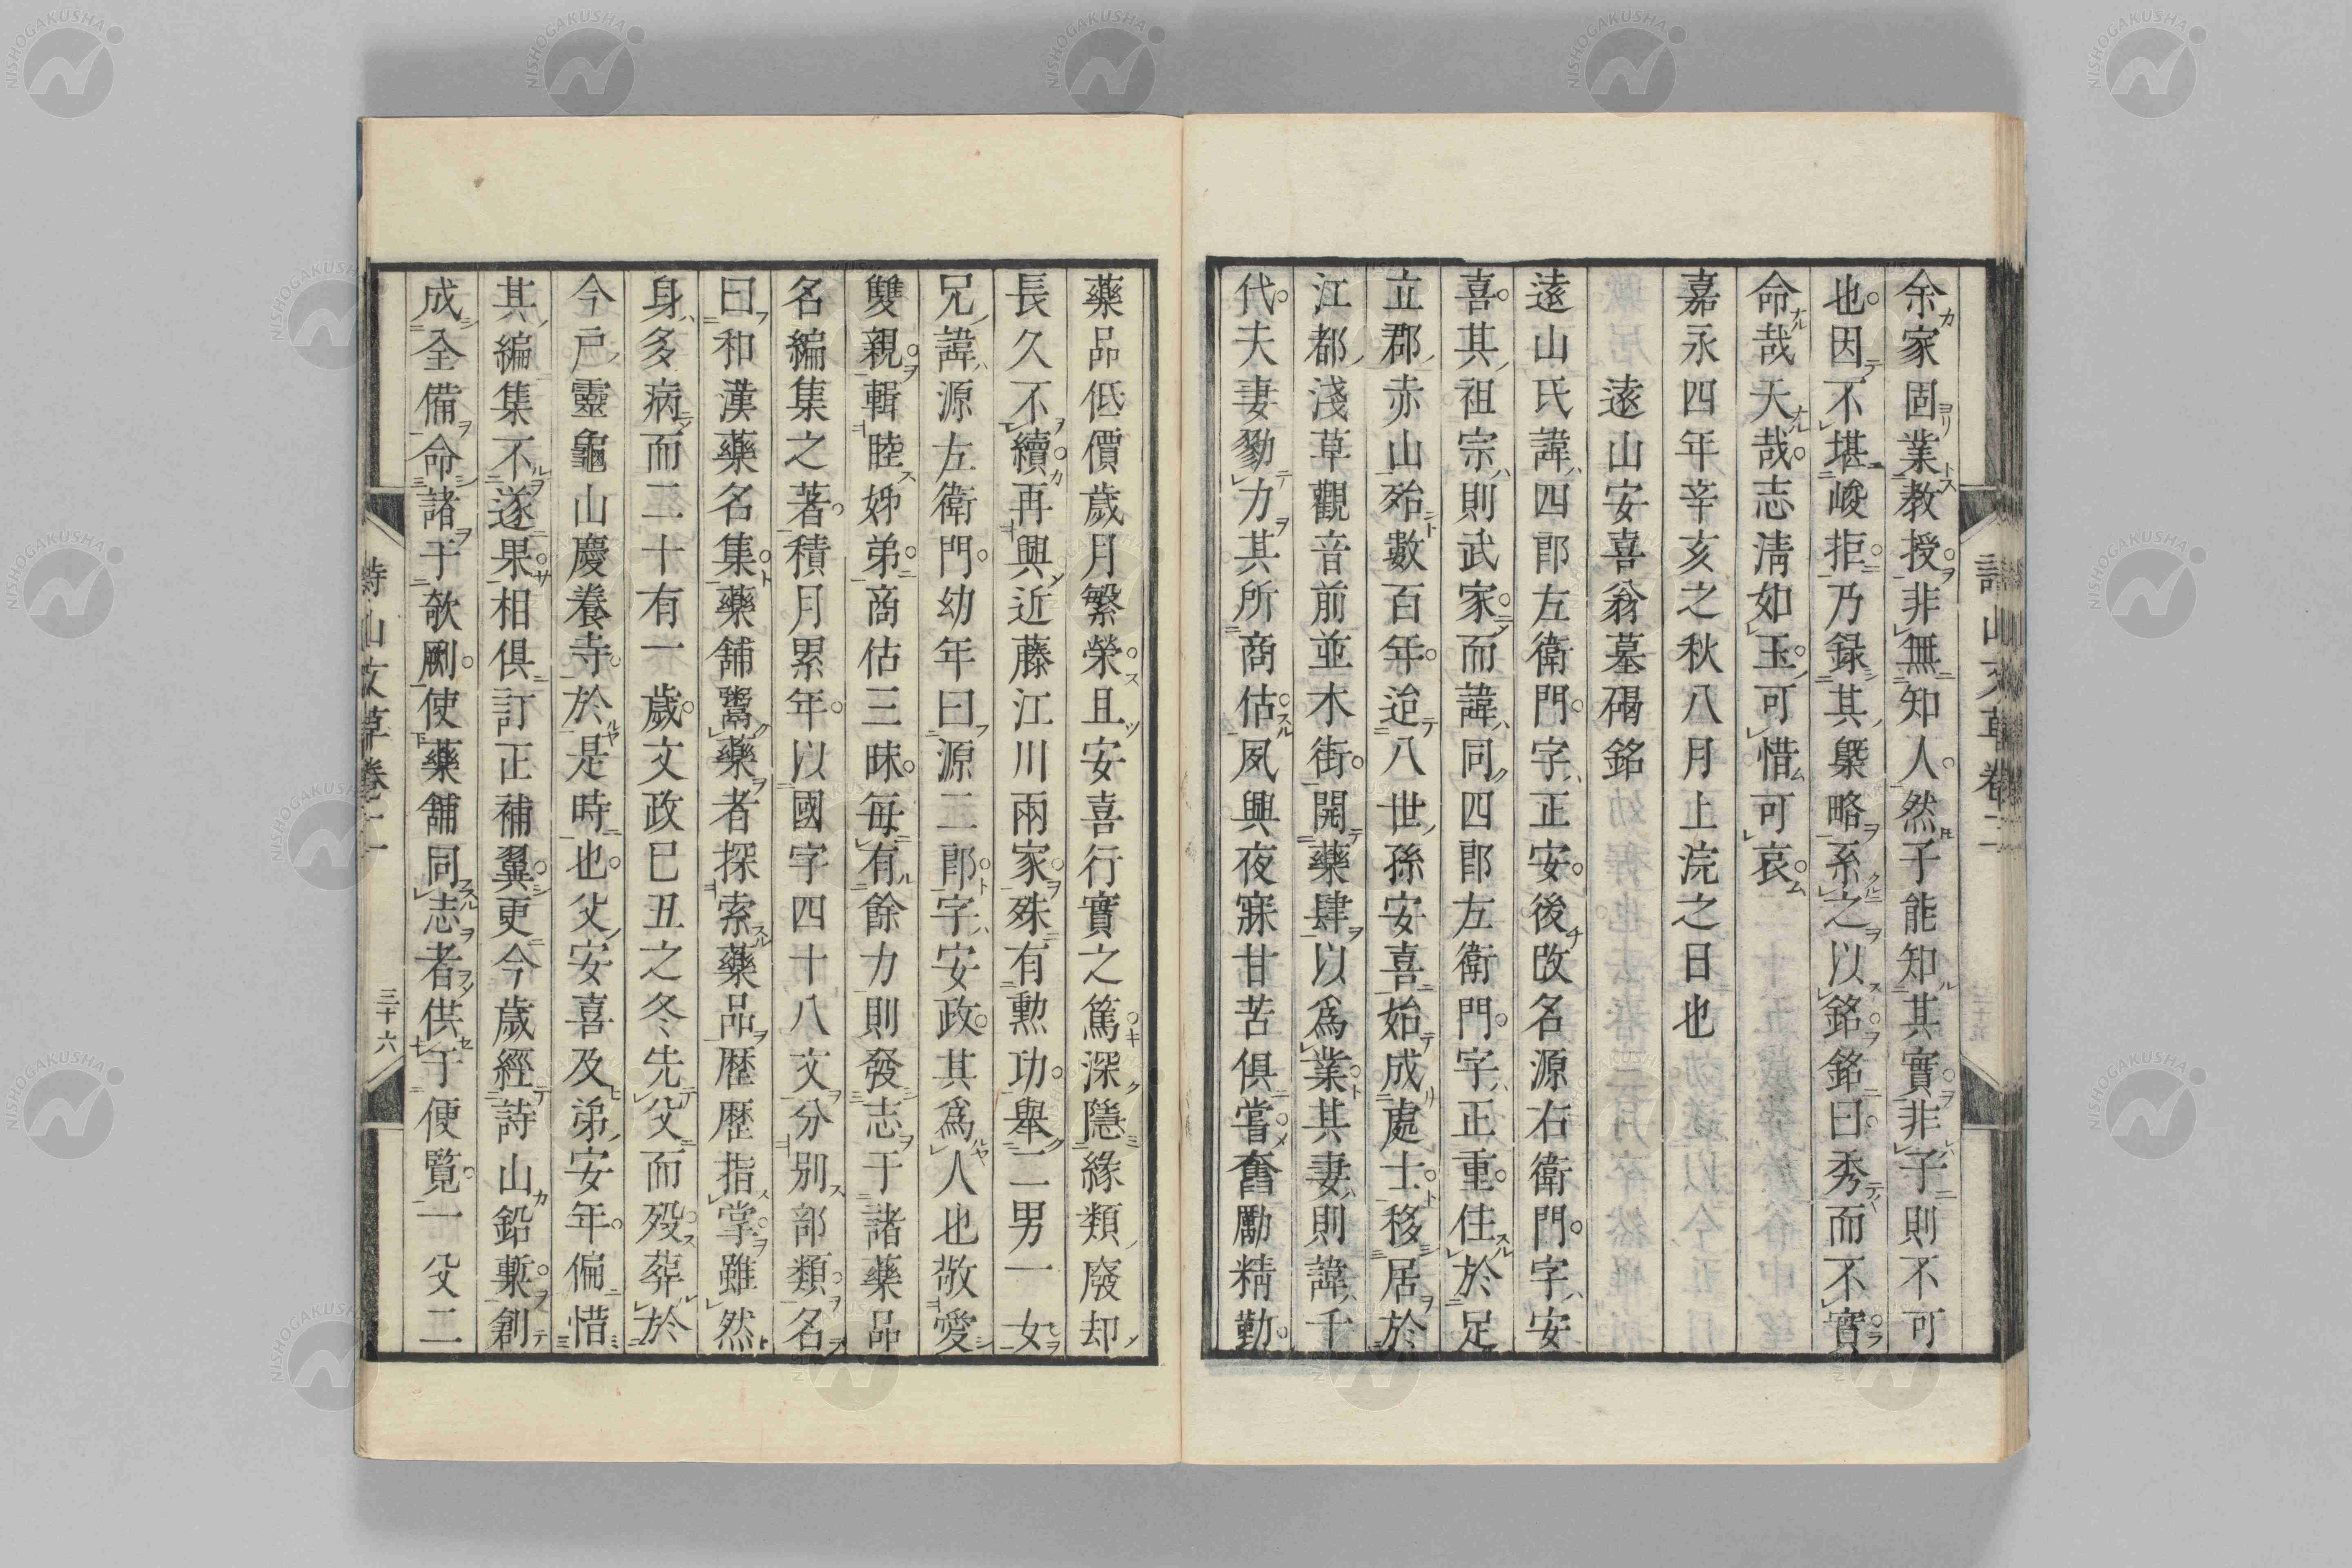 余家固業教授非無知人然子能知其實非子則不可
也因不堪峻拒乃録其槩略系之以銘銘曰秀而不實
命哉天哉志淸如玉可惜可哀
嘉永四年辛亥之秋八月上浣之日也
遠山安喜翁墓碣銘
遠山氏諱四郎左衛門字正安後改名源右衛門字安
喜其祖宗則武家而諱同四郎左衛門字正重住於足
立郡赤山殆數百年迨八世孫安喜始成處士移居於
江都淺草觀音前並木街開藥肆以爲業其妻則諱千
代夫妻勠力其所商估夙興夜寐甘苦俱嘗奮勵精勤
藥品低價歲月繁榮且安喜行實之篤深隱緣類廢却
長久不續再興近藤江川兩家殊有勲功舉二男一女
兄諱源左衛門幼年曰源二郎字安政其爲人也敬愛
雙親輯睦姊弟商估三昧毎有餘力則發志于諸藥品
名編集之著積月累年以國字四十八文分別部類名
曰和漢藥名集藥舖鬻藥者探索藥品歴歴指掌雖然
身多病而二十有一歲文政巳丑之冬先父而歿葬於
今戸靈龜山慶養寺於是時也父安喜及弟安年偏惜
其編集不遂果相俱訂正補翼更今歲經詩山鉛槧創
成全備命諸于欹劂使藥舖同志者供于便覽一父二
詩山文草卷二
三十六